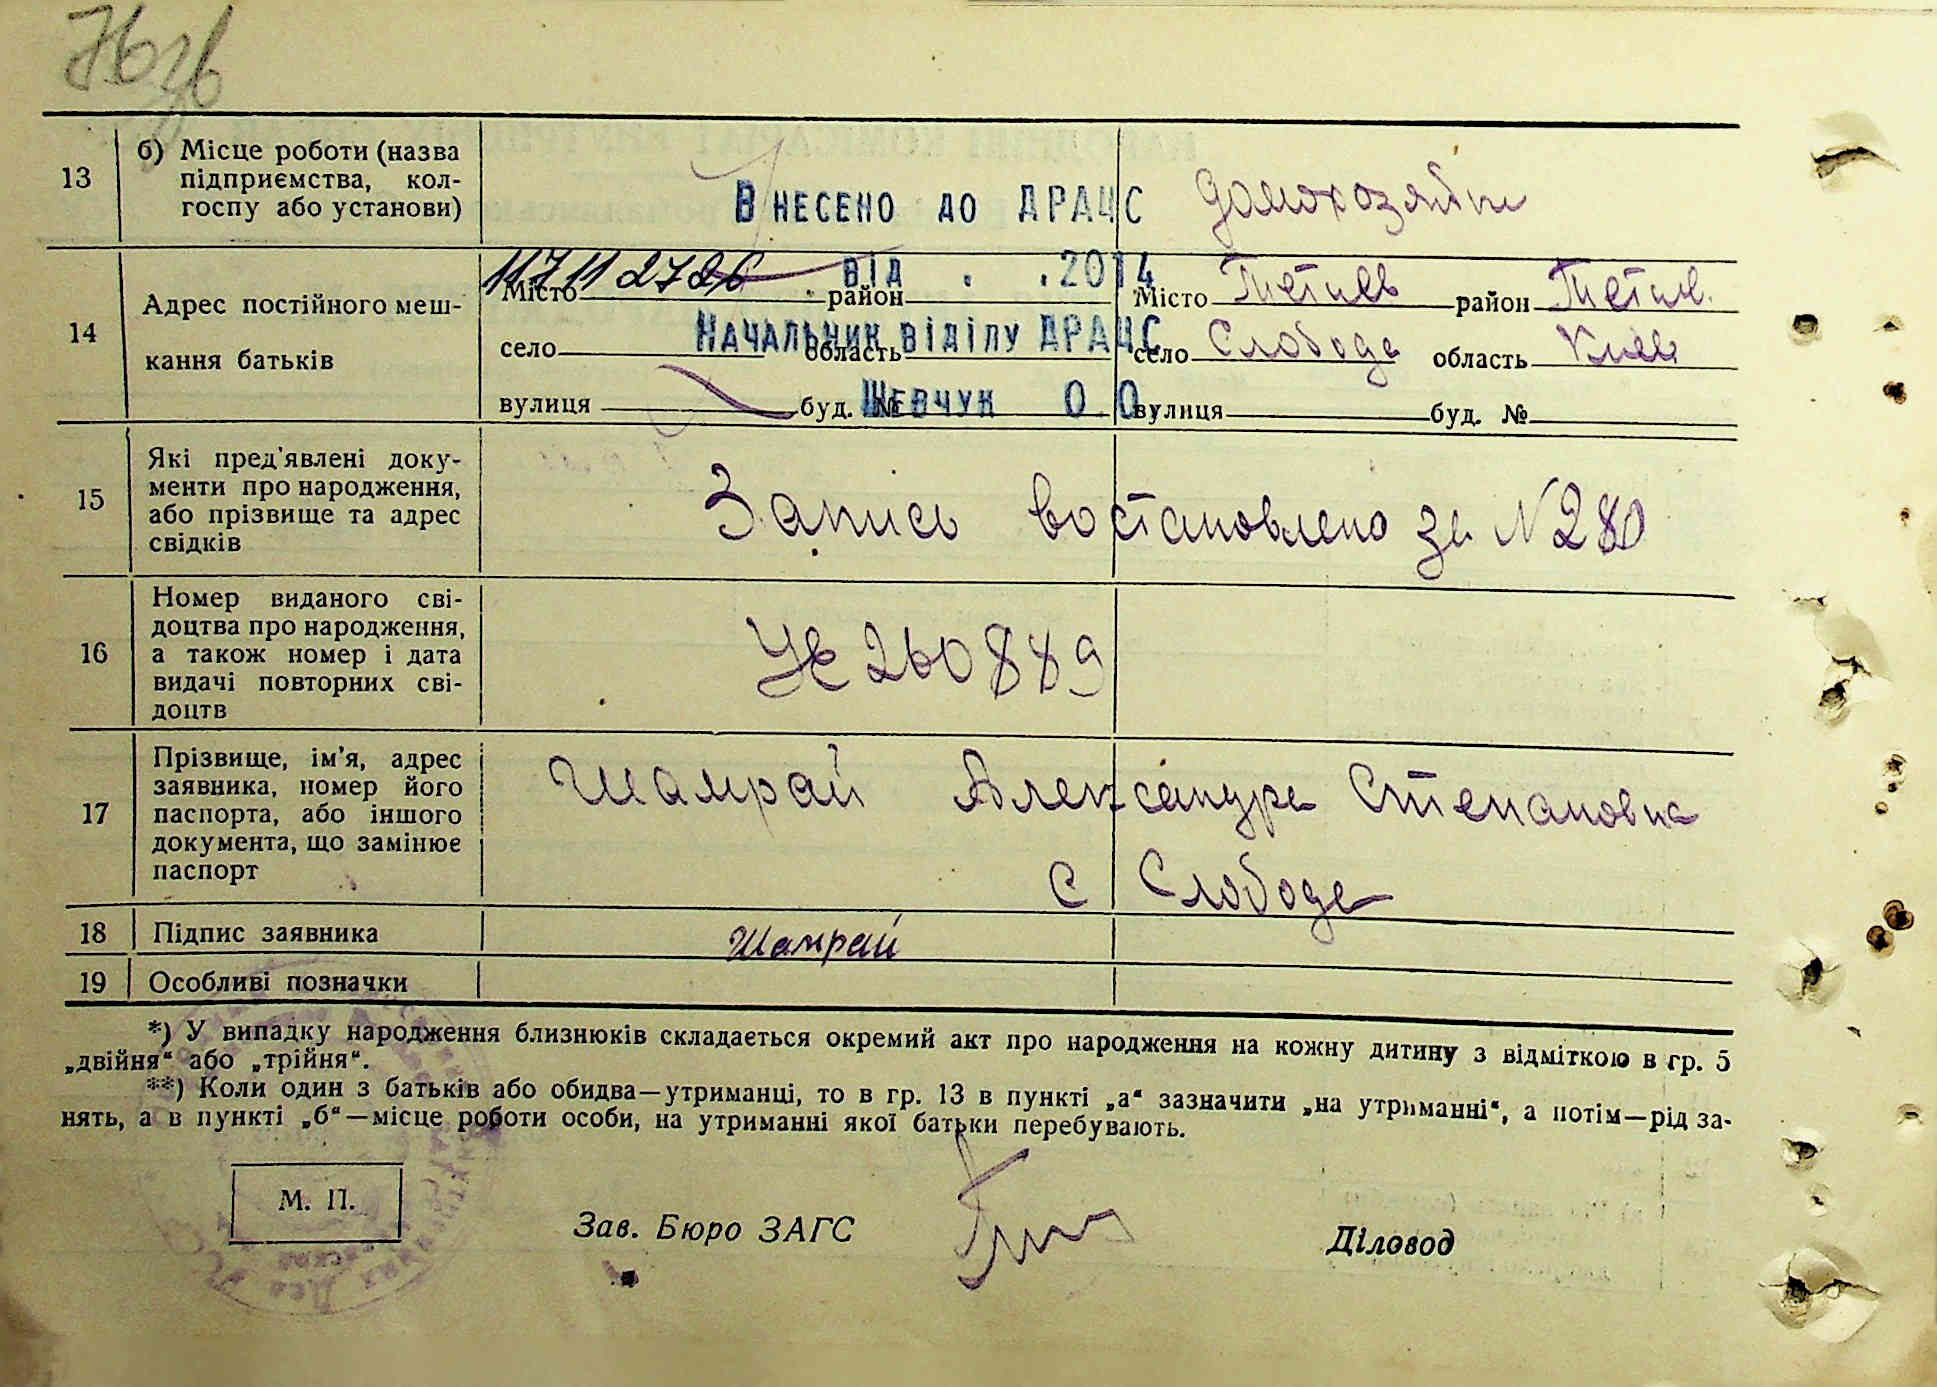 13
б) Місце роботи (назва
підприємства, кол-
госпу або установи)
Внесено до ДРАЦС
домохозяйк
14
Адрес постійного меш-
кання батьків
від . .2014
Місто район
Начальник відділу ДРАЦС
село область
Шевчук О О
вулиця буд. №
Місто Тетиев район Тетиев.
село Слобода область Киев
вулиця буд. №
15
Які пред'явлені доку-
менти про народження,
або прізвище та адрес
свідків
Запись востановлено за №280
16
Номер виданого сві-
доцтва про народження,
а також номер і дата
видачі повторних сві-
доцтв
260889
17
Прізвище, ім'я, адрес
заявника, номер його
паспорта, або іншого
документа, що замінює
паспорт
Шамрай Александра Степановна
с Слобода
18
Підпис заявника
Шамрай
19
Особливі позначки
*) У випадку народження близнюків складається окремий акт про народження на кожну дитину з відміткою в гр. 5
„двійня“ або „трійня“.
**) Коли один з батьків або обидва—утриманці, то в гр. 13 в пункті „а“ зазначити „на утриманні“, а потім—рід за-
нять, а в пункті „б“—місце роботи особи, на утриманні якої батьки перебувають.
М. П.
Зав. Бюро ЗАГС
Діловод